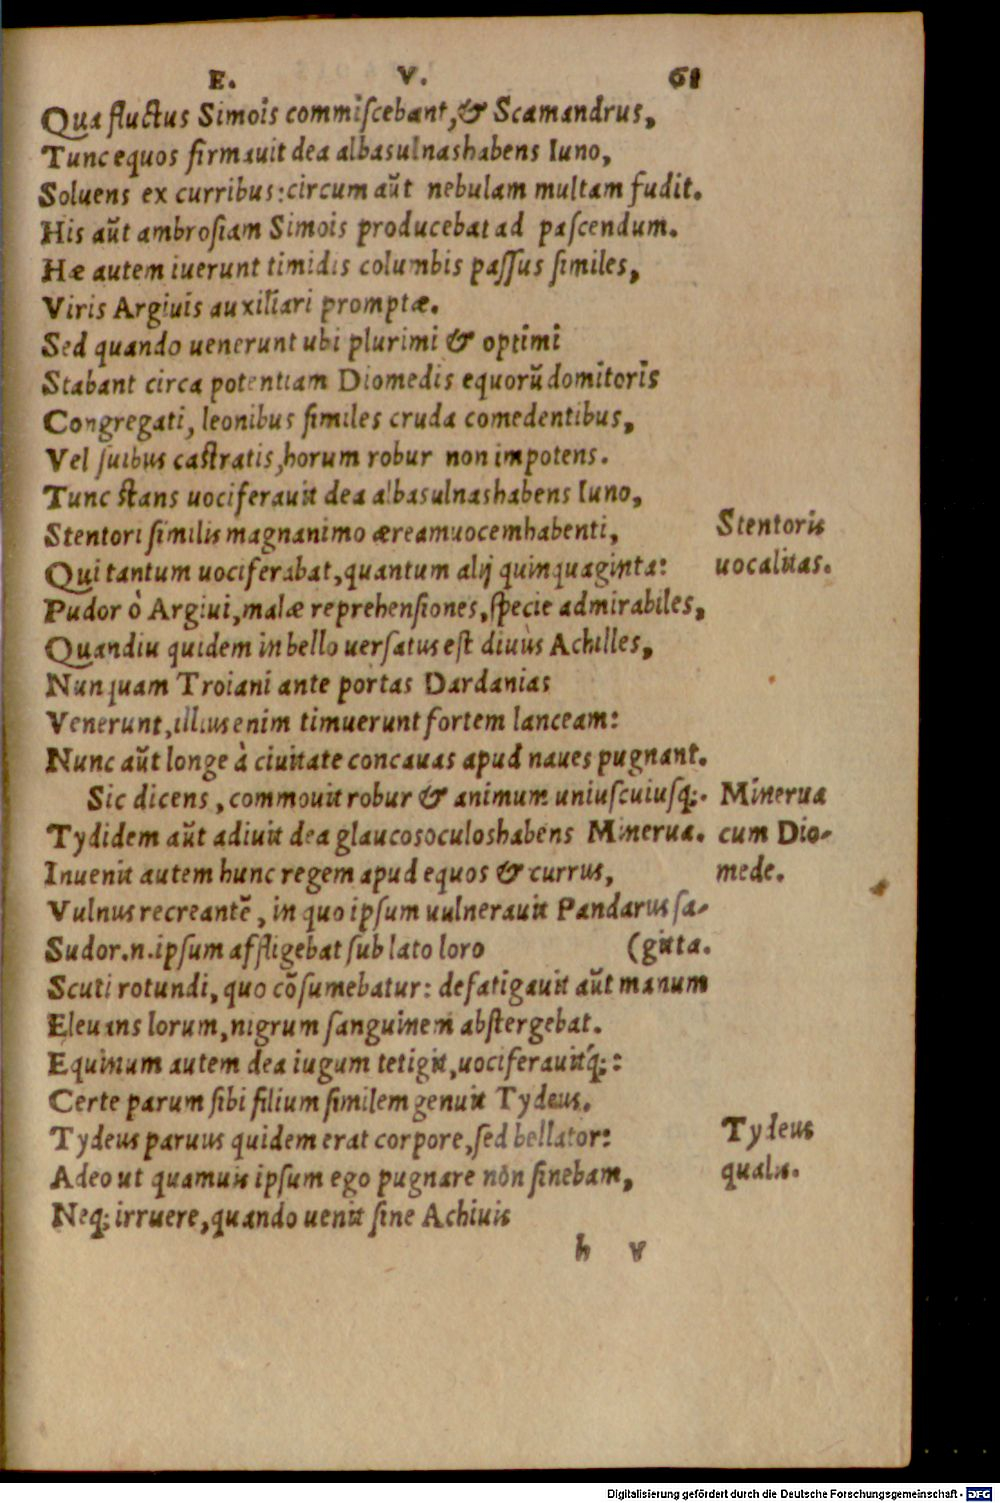 E. V. 61
Qua fluctus Simois commiſcebant, & Scamandrus,
Tunc equos firmauit dea albasulnashabens Iuno,
Soluens ex curribus: circum aũt nebulam multam fudit.
His aũt ambroſiam Simois producebat ad paſcendum.
Hæ autem iuerunt timidis columbis paſſus ſimiles,
Viris Argiuis auxiliari promptæ.
Sed quando uenerunt ubi plurimi & optimi
Stabant circa potentiam Diomedis equorũ domitoris
Congregati, leonibus ſimiles cruda comedentibus,
Vel ſuibus caſtratis, horum robur non impotens.
Tunc ſtans uociferauit dea albasulnashabens Iuno,
Stentori ſimilis magnanimo æreamuocemhabenti,
Stentoris
Qui tantum uociferabat, quantum alij quinquaginta:
uocalitas.
Pudor ò Argiui, malæ reprehenſiones, ſpecie admirabiles,
Quandiu quidem in bello uerſatus eſt diuus Achilles,
Nunquam Troiani ante portas Dardanias
Venerunt, illius enim timuerunt fortem lanceam:
Nunc aũt longe à ciuitate concauas apud naues pugnant.
Sic dicens, commouit robur & animum uniuſcuiuſq;.
Minerua
Tydidem aũt adiuit dea glaucosoculoshabens Minerua.
cum Dio-
Inuenit autem hunc regem apud equos & currus,
mede.
Vulnus recreantẽ, in quo ipſum uulnerauit Pandarus ſa-
Sudor.n.ipſum affligebat ſub lato loro (gitta.
Scuti rotundi, quo cõſumebatur: defatigauit aũt manum
Eleuans lorum, nigrum ſanguinem abſtergebat.
Equinum autem dea iugum tetigit, uociferauitq́;:
Certe parum ſibi filium ſimilem genuit Tydeus.
Tydeus paruus quidem erat corpore, ſed bellator:
Tydeus
Adeo ut quamuis ipſum ego pugnare non ſinebam,
qualis.
Neq; irruere, quando uenit ſine Achiuis
h v
Digitalisierung gefördert durch die Deutsche Forschungsgemeinschaft - DFG